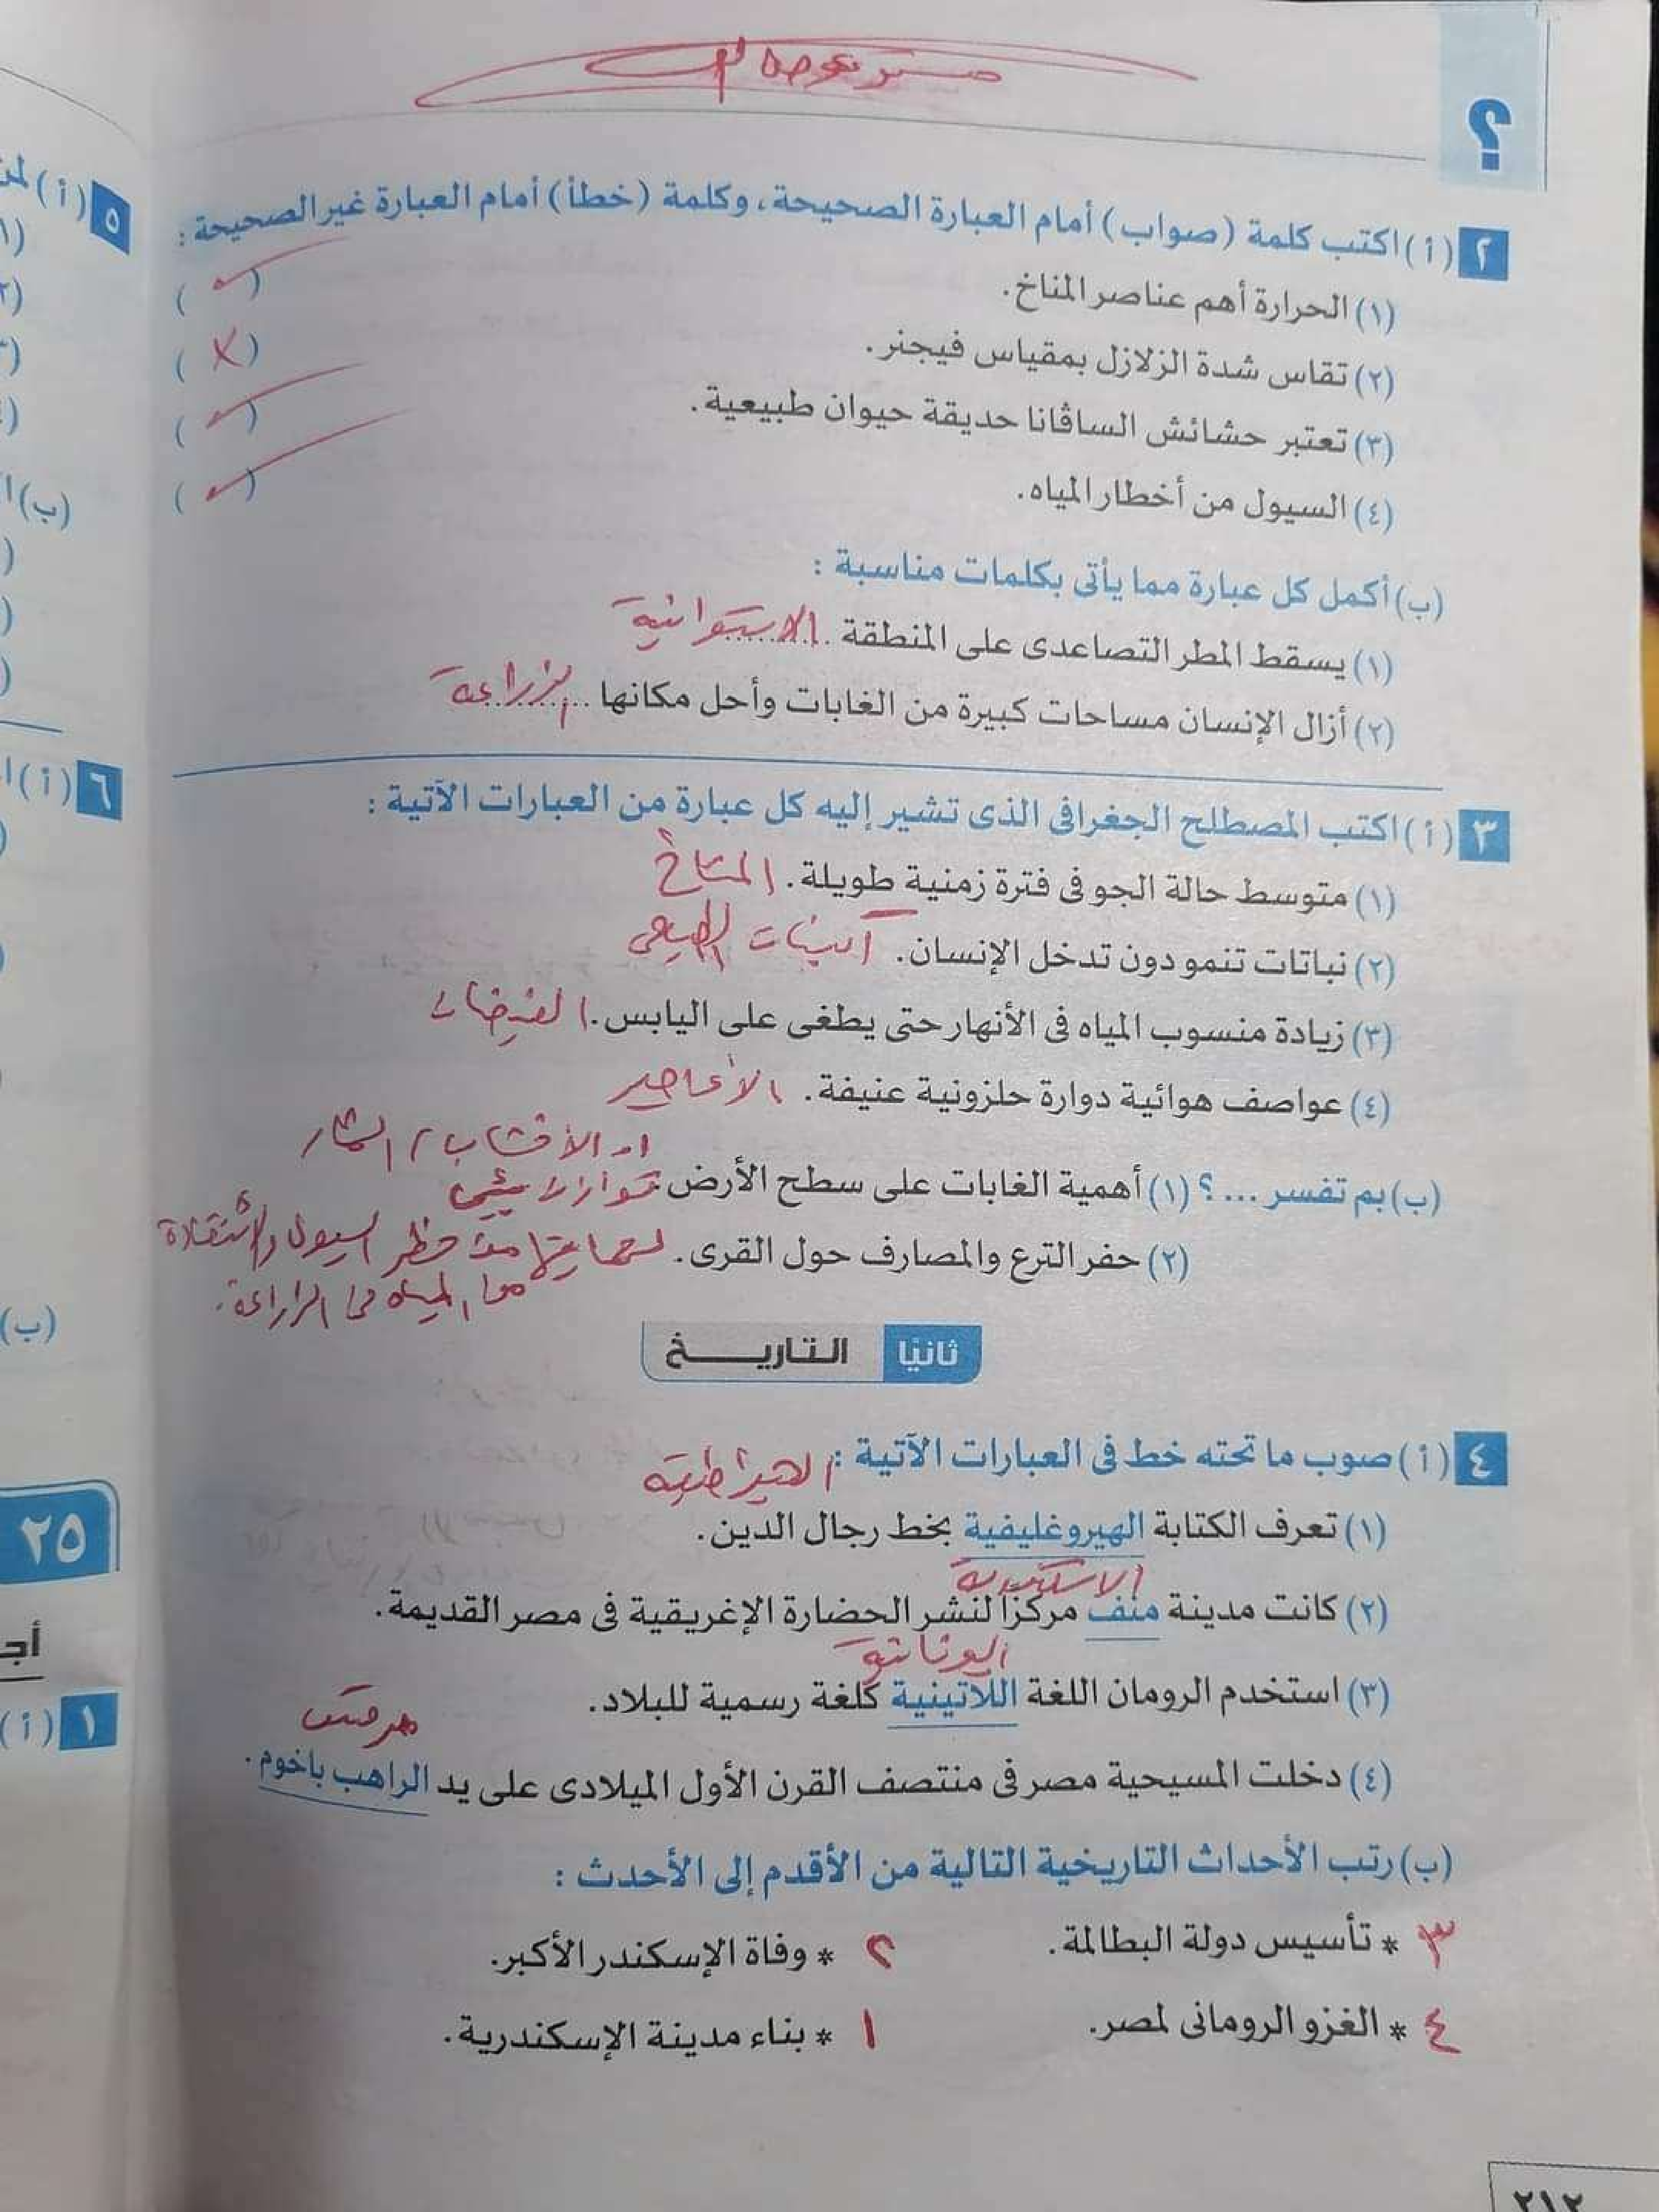 ؟
٢ (أ) اكتب كلمة (صواب) أمام العبارة الصحيحة، وكلمة (خطأ) أمام العبارة غير الصحيحة :
(١) الحرارة أهم عناصر المناخ. (✓)
(٢) تقاس شدة الزلازل بمقياس فيجنر. (X)
(٣) تعتبر حشائش الساڤانا حديقة حيوان طبيعية. (✓)
(٤) السيول من أخطار المياه. (✓)
(ب) أكمل كل عبارة مما يأتى بكلمات مناسبة :
(١) يسقط المطر التصاعدى على المنطقة الاستوائية
(٢) أزال الإنسان مساحات كبيرة من الغابات وأحل مكانها الزراعة
٣ (أ) اكتب المصطلح الجغرافى الذى تشير إليه كل عبارة من العبارات الآتية :
(١) متوسط حالة الجو فى فترة زمنية طويلة. المناخ
(٢) نباتات تنمو دون تدخل الإنسان. النبات الطبيعى
(٣) زيادة منسوب المياه فى الأنهار حتى يطغى على اليابس. الفيضان
(٤) عواصف هوائية دوارة حلزونية عنيفة. الأعاصير
الأخشاب
(ب) بم تفسر ...؟ (١) أهمية الغابات على سطح الأرض. توازن بيئى
(٢) حفر الترع والمصارف حول القرى. لحمايتها من خطر السيول والاستفادة
من المياه فى الزراعة.
ثانيًا التاريخ
٤ (أ) صوب ما تحته خط فى العبارات الآتية :
الهيراطيقية
(١) تعرف الكتابة الهيروغليفية بخط رجال الدين.
الاسكندرية
(٢) كانت مدينة منف مركزًا لنشر الحضارة الإغريقية فى مصر القديمة.
اليونانية
(٣) استخدم الرومان اللغة اللاتينية كلغة رسمية للبلاد.
مرقس
(٤) دخلت المسيحية مصر فى منتصف القرن الأول الميلادى على يد الراهب باخوم.
(ب) رتب الأحداث التاريخية التالية من الأقدم إلى الأحدث :
٣ * تأسيس دولة البطالمة. ٢ * وفاة الإسكندر الأكبر.
٤ * الغزو الرومانى لمصر. ١ * بناء مدينة الإسكندرية.
٢١٢
٥ (أ)
(ب)
٦ (أ)
(ب)
٢٥
١ (أ)